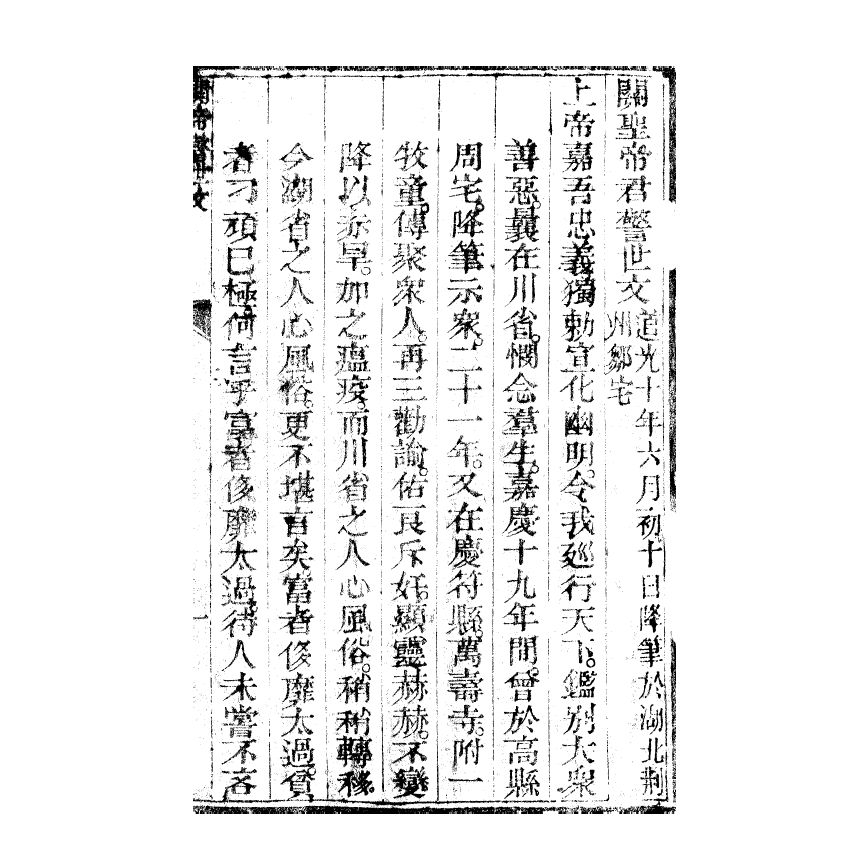 關聖帝君警世文 道光十年六月初十日降筆於湖北荆
州鄒宅
上帝嘉吾忠義獨勅宣化幽明。令我廵行天下。鑑別大衆
善惡。曩在川省。憫念羣生。嘉慶十九年間。曾於高縣
周宅。降筆示衆。二十一年。又在慶符縣。萬壽寺。附一
牧童。傳聚衆人。再三勸諭。佑良斥奸。顯靈赫赫。不變
降以赤旱。加之瘟疫。而川省之人心風俗。稍稍轉移。
今湖省之人心風俗。更不堪言矣。富者侈靡太過。貧
者刁頑已極。何言乎富者侈靡太過。待人未嘗不吝